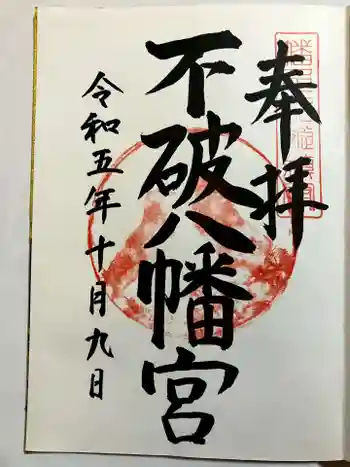 奉拝
不破八幡宮
令和五年十月九日